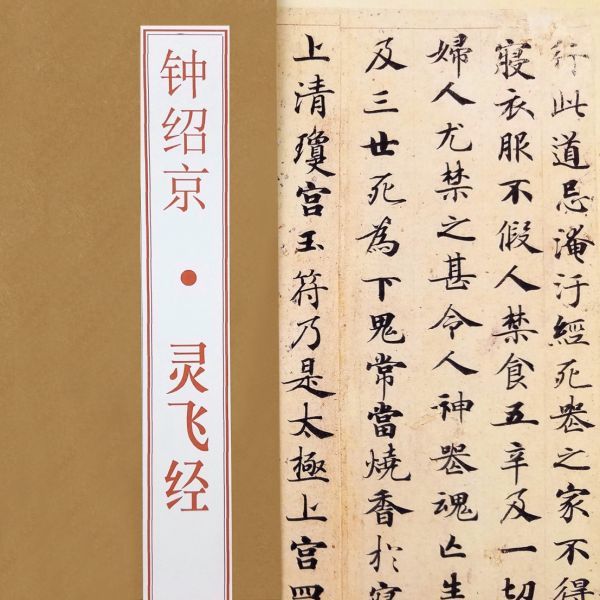 钟绍京 • 灵飞经
行此道忌淹汙經死喪之家不得
寢衣服不假人禁食五辛及一切
婦人尤禁之甚令人神喪魂亡生
及三世死為下鬼常當燒香於寢
上清瓊宮玉符乃是太極上宮四